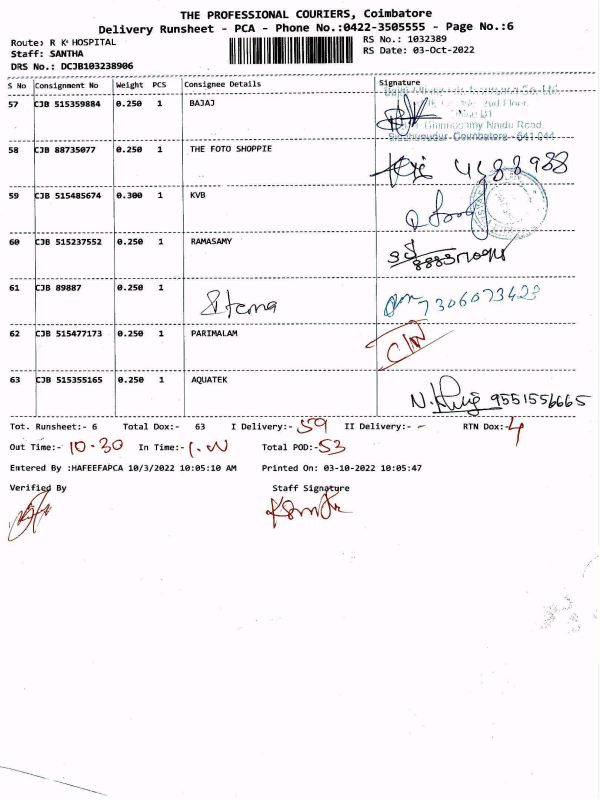 THE PROFESSIONAL COURIERS, Coimbatore
Delivery Runsheet - PCA - Phone No.:0422-3505555 - Page No.:6
Route: R K HOSPITAL RS No.: 1032389
Staff: SANTHA RS Date: 03-Oct-2022
DRS No.: DCJB103238906
S No Consignment No Weight PCS Consignee Details Signature
57 CJB 515359884 0.250 1 BAJAJ
2nd Floor,
Naidu Road,
Coimbatore - 641 044
58 CJB 88735077 0.250 1 THE FOTO SHOPPIE
59 CJB 515485674 0.300 1 KVB
60 CJB 515237552 0.250 1 RAMASAMY
61 CJB 89887 0.250 1 7306073423
62 CJB 515477173 0.250 1 PARIMALAM
63 CJB 515355165 0.250 1 AQUATEK 9551556665
Tot. Runsheet:- 6 Total Dox:- 63 I Delivery:- 59 II Delivery:- - RTN Dox:- 4
Out Time:- 10.30 In Time:- Total POD:- 53
Entered By :HAFEEFAPCA 10/3/2022 10:05:10 AM Printed On: 03-10-2022 10:05:47
Verified By Staff Signature